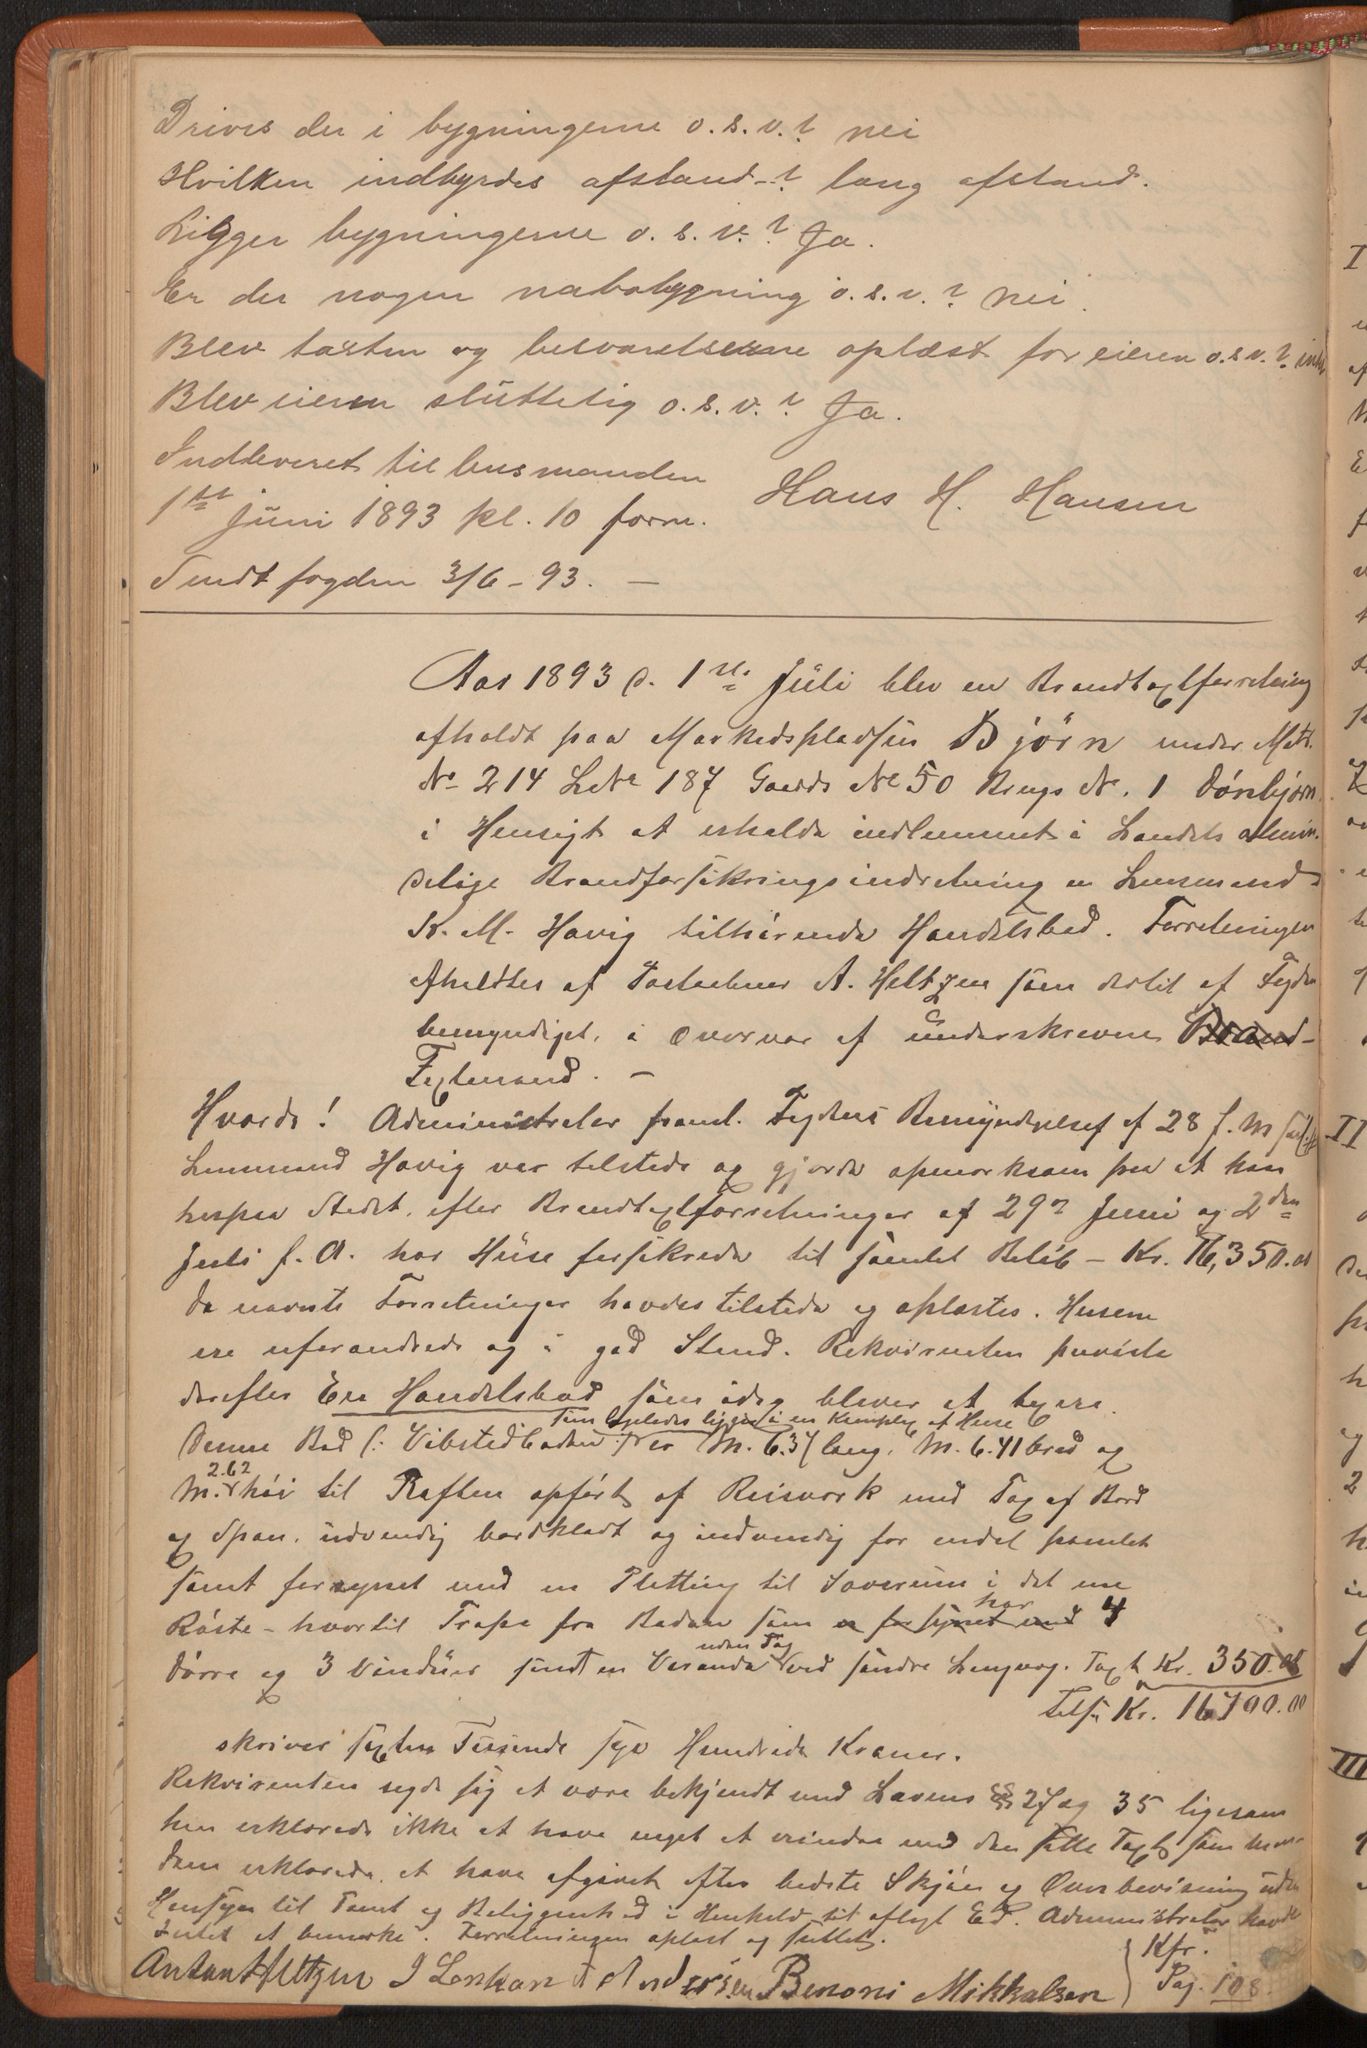 Drives der i bygningerne o.s.v.? nei
Hvilken indbyrdes afstand-? lang afstand.
Ligger bygningerne o.s.v.? Ja.
Er der nogen nabobygning o.s.v.? nei.
Blev taxten og besvarelserne oplæst for eieren o.s.v.?
Blev eieren sluttelig o.s.v.? Ja.
Indleveret til lensmanden
1ste juni 1893 kl. 10 form. Hans H. Hansen
Sendt fogden 3/6-93. —
Aar 1893 d. 1ste Juli blev en Brandtaxtforretning
afholdt paa Markedspladsen Bjørn under Matr.
No 214 LNo 187 Gaards No 50 Brugs No. 1 Dønbjørn
i Hensigt at erholde indlemmet i Landets almin-
delige Brandforsikringsindretning en Lensmand
K. M. Havig tilhørende Handelsbod. Forretningen
afholdtes af A. Heltzen som dertil af Fogden
bemyndiget, i Overvær af underskrevne Brand-
Taxtmænd. —
Hvorda! Administrator freml. Fogdens Bemyndigelse af 28 f. M
Lensmand Havig var tilstede og gjorde opmærksom paa at han
herpaa Stedet, efter Brandtaxtforretninger af 29de Juni og 2den
Juli f. A. har Huse forsikrede til samlet Beløb - Kr. 16,350.00
da nævnte Forretninger havdes tilstede og oplæstes. Husene
ere uforandrede og i god Stand. Rekvirenten paaviste
derefter En Handelsbod som idag blever at taxere.
som ligger i en Komplex af Huse
Denne Bod (: Vibstedboden :) er M. 6.37 lang, M. 6.41 bred og
2.62
M. høi til Raften opført af Reisverk med Tag af Bord
og Spon, udvendig bordklædt og indvendig for endel panelet
samt forsynet med en Pletting til Soverum i det ene
har
Røste - hvortil Trappe fra Boden som er forsynet med 4
uden Tag
Dørre og 3 Vinduer samt en Veranda ved søndre Langvæg. Taxt Kr. 350.00
Tils. Kr. 16700.00
skriver sexten Tusende syv Hundrede Kroner.
Rekvirenten sagde sig at være bekjendt med Lovens §§ 27 og 35 ligesom
han erklærede ikke at have noget at erindre mod den satte Taxt som
erklærede at have afgivet efter bedste Skjøn og Overbevisning uden
Hensyn til Tomt og Beliggenhed i Henhold til aflagt Ed. Administrator havde
Intet at bemærke. Forretningen oplæst og sluttet.
Anton Heltzen Andersen Benoni Mikkalsen
Kfr.
Pag. 108.